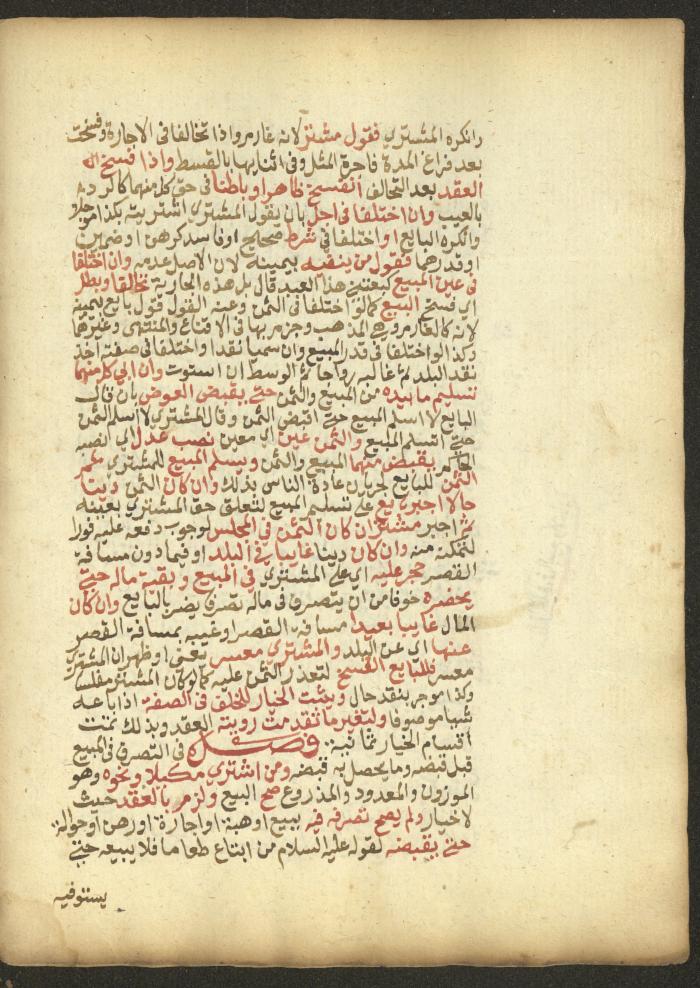 وانكره المشتري فقول مشتر لانه غارم واذا تحالفا في الاجارة وفسخت
بعد فراغ المدة فاجرة المثل وفي اثنايها بالقسط واذا فسخ
العقد بعد التحالف انفسخ ظاهرا وباطنا في حق كل منهما كالرد
بالعيب وان اختلفا في اجل بان يقول المشتري اشتريته بكذا موجلا
وانكره البايع او اختلفا في شرط صحيح او فاسد كرهن او ضمين
او قدرهما فقول من ينفيه بيمينه لان الاصل عدمه وان اختلفا
في عين المبيع كبعتني هذا العبد قال بل هذه الجارية تحالفا وبطل
اي فسخ البيع كما لو اختلفا في الثمن وعنه القول قول بايع بيمينه
لانه كالغارم وهي المذهب وجزم بها في الاقناع والمنتهى وغيرها
وكذا لو اختلفا في قدر المبيع وان سميا نقدا واختلفا في صفته اخذ
نقد البلد ثم غالبه رواجا ثم الوسط ان استوت وان ابي كل منهما
تسليم ما بيده من المبيع والثمن حتي يقبض العوض بان قال
البايع لا اسلم المبيع حتي اقبض الثمن وقال المشتري لا اسلم الثمن
حتي اتسلم المبيع والثمن عين اي معين نصب عدل اي نصبه
الحاكم يقبض منهما المبيع والثمن ويسلم المبيع للمشتري ثم
الثمن للبايع لجريان عادة الناس بذلك وان كان الثمن دينا
حالا اجبر بايع على تسليم المبيع لتعلق حق المشتري بعينه
ثم اجبر مشتر ان كان الثمن في المجلس لوجوب دفعه عليه فورا
لتمكنه منه وان كان دينا غايبا في البلد او فيما دون مسافة
القصر حجر عليه اي على المشتري في المبيع وبقية ماله حتي
يحضره خوفا من ان يتصرف في ماله تصرفا يضر بالبايع وان كان
المال غايبا بعيدا مسافة القصر او غيبه بمسافة القصر
عنها اي عن البلد والمشتري معسر يعني او ظهر ان المشتري
معسر فللبايع الفسخ لتعذر الثمن عليه كما لو كان المشتر مفلسا
وكذا موجر بنقد حال ويثبت الخيار للخلف في الصفة اذا باعه
شيا موصوفا ولتغير ما تقدمت رويته العقد وبذلك تمت
اقسام الخيار ثمانية فصل في التصرف في المبيع
قبل قبضه وما يحصل به قبضه ومن اشتري مكيلا ونحوه وهو
الموزون والمعدود والمذروع صح البيع ولزم بالعقد حيث
لا خيار ولم يصح تصرفه فيه ببيع او هبة او اجارة او رهن او حوالة
حتي يقبضه لقوله عليه السلام من ابتاع طعاما فلا يبيعه حتي
يستوفيه